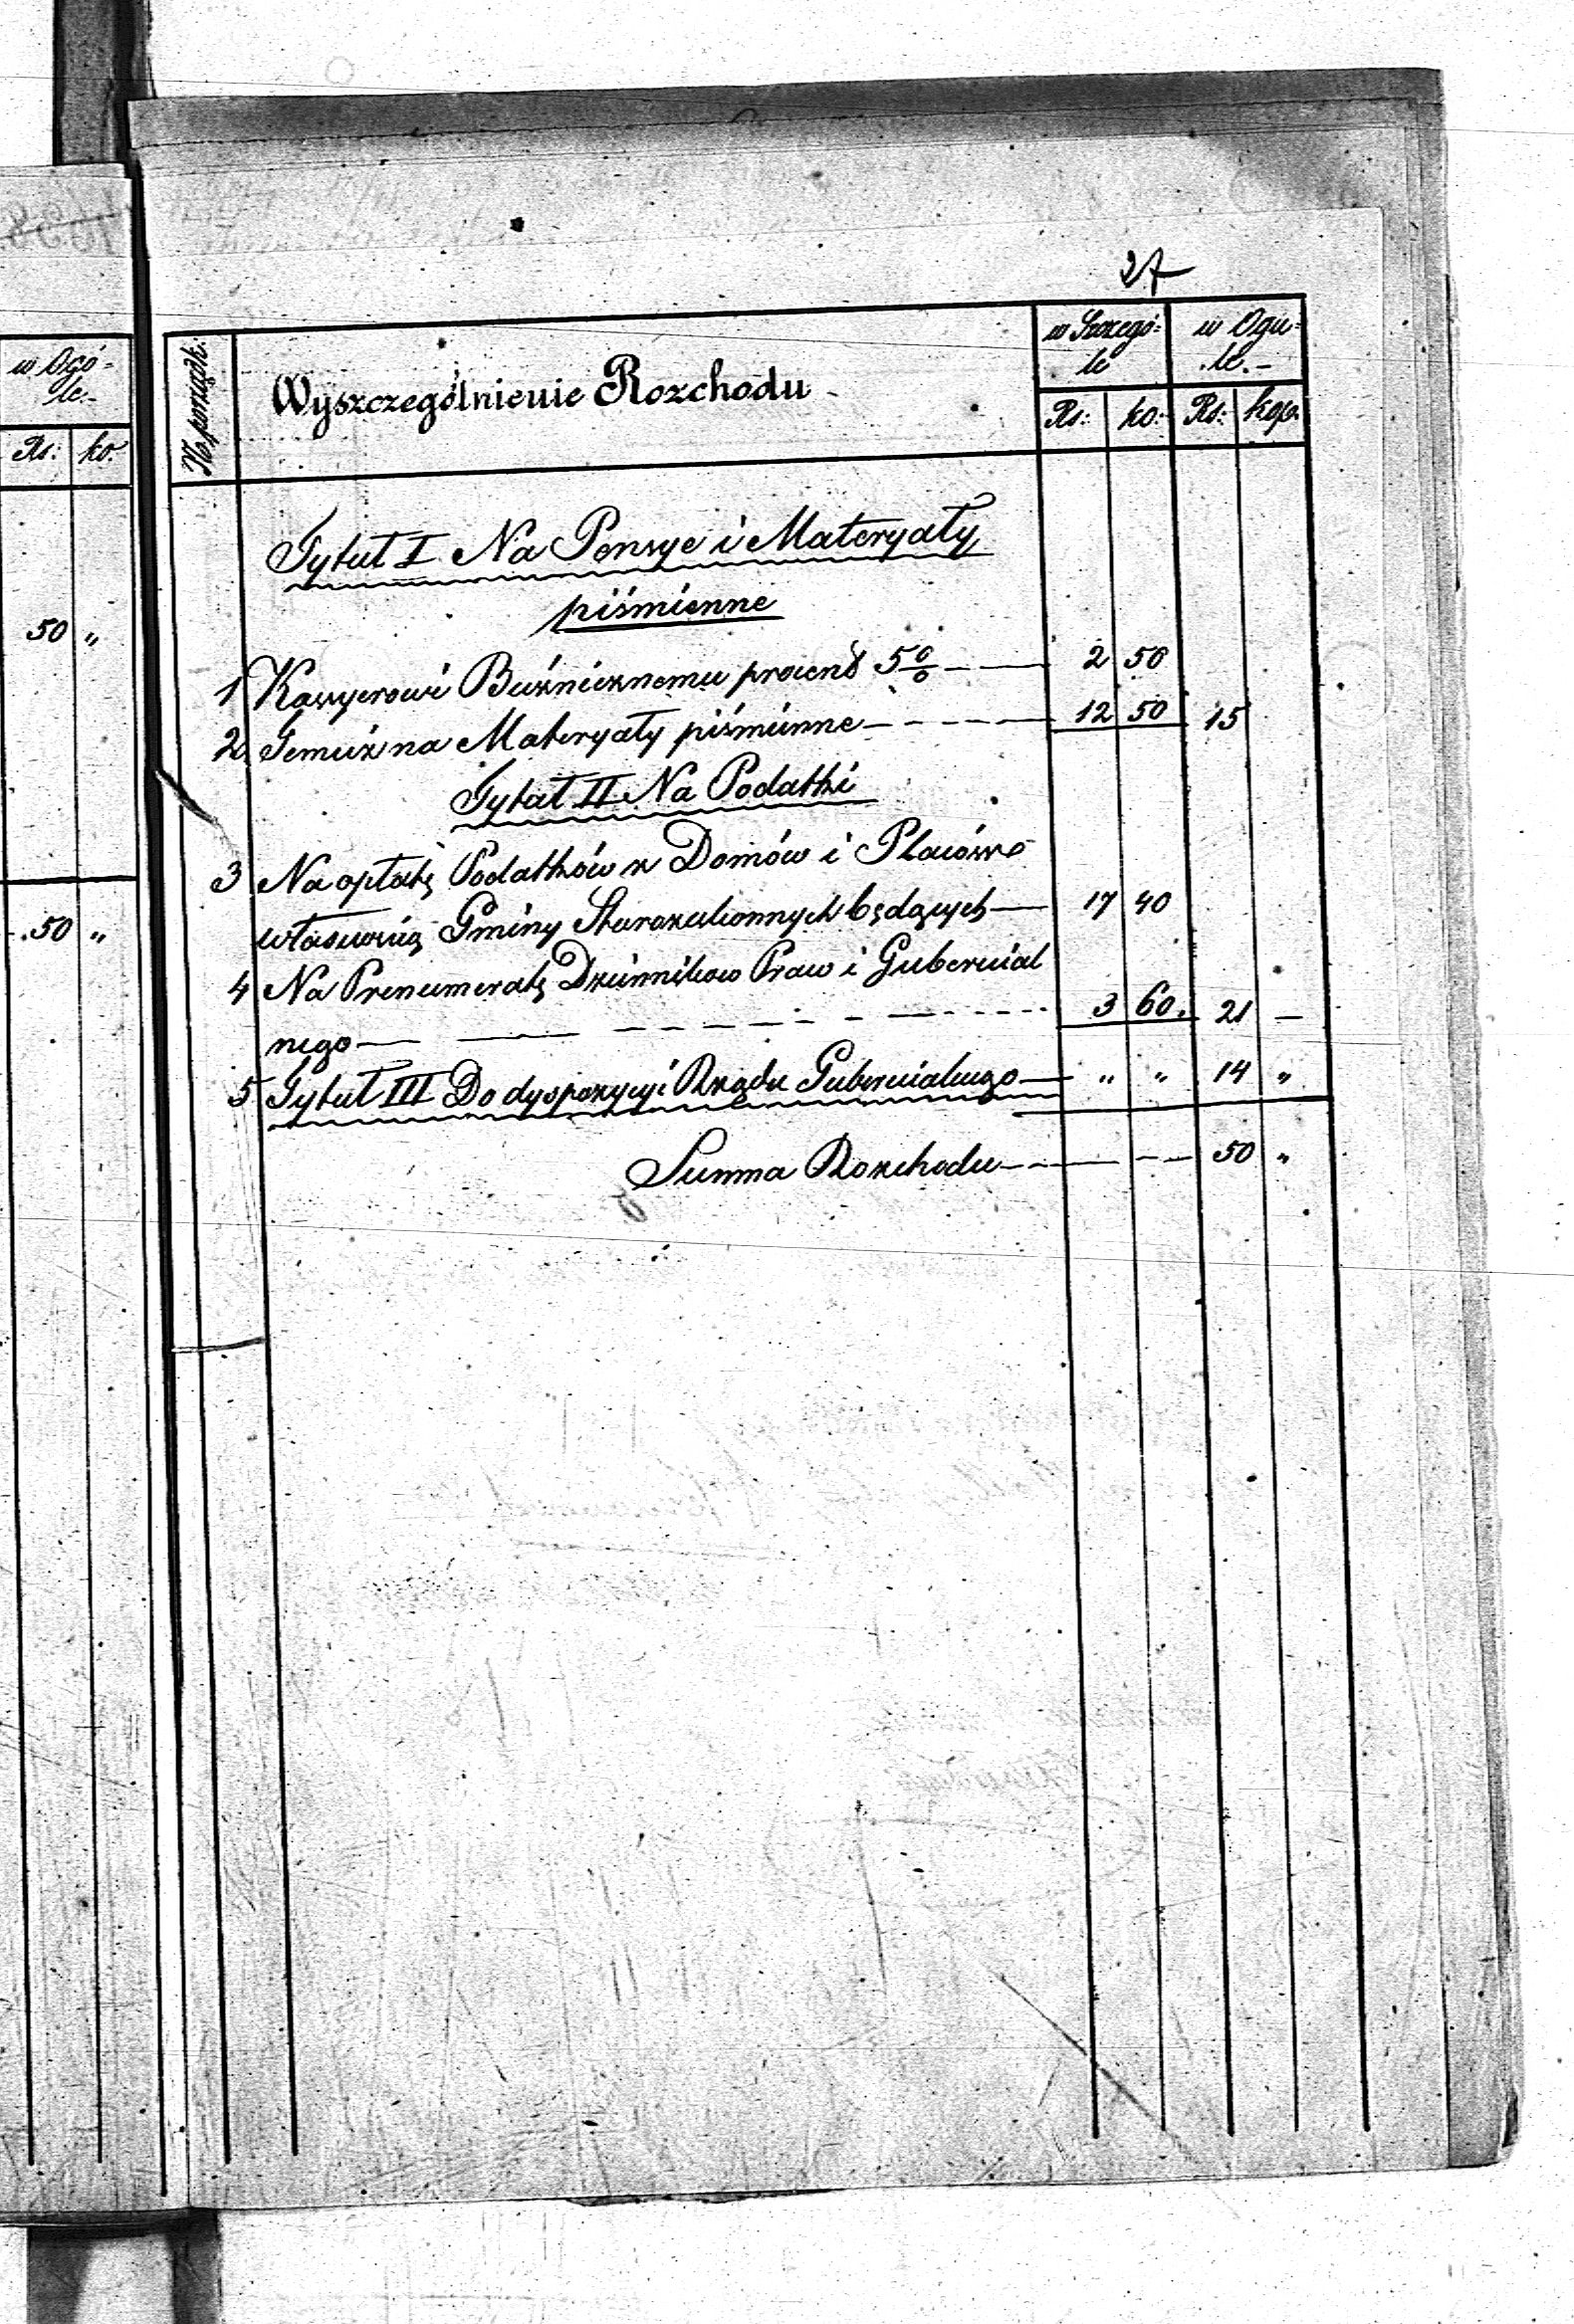 w Ogó-
le.-
Rs: ko.
50 "
50 "
27
No porządk.
Wyszczególnienie Rozchodu
w Szczegó-
le
w Ogu-
le.-
Rs: ko: Rs: kop.
Tytuł I Na Pensye i Materyały
piśmienne
1 Kassyerowi Bużnicznemu procent 5% 2 50
2 Temuż na Materyały piśmienne 12 50 15
Tytuł II Na Podatki
3 Na opłatę Podatków z Domów i Placów
własnością Gminy Starozakonnych będących 17 40
4 Na Prenumeratę Dzienników Praw i Gubernial
nego 3 60. 21 —
5 Tytuł III Do dyspozycyi Rządu Gubernialnego " " 14 "
Summa Rozchodu 50 "